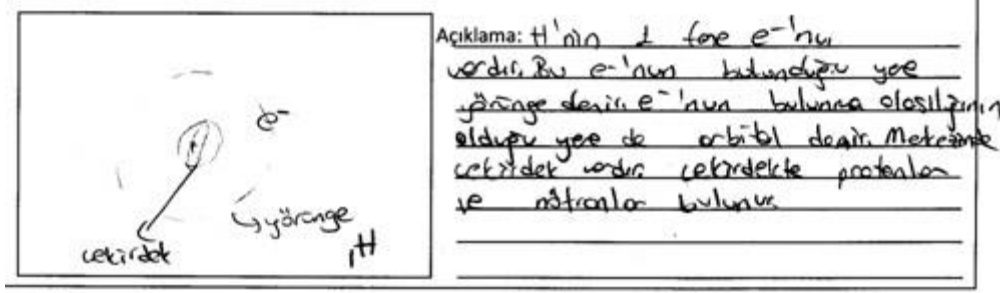 e⁻
yörünge
çekirdek
₁H
Açıklama: H'nin 1 tane e⁻'nu
vardır. Bu e⁻'nun bulunduğu yere
yörünge denir. e⁻'nun bulunma olasılığının
olduğu yere de orbital denir. Merkezinde
çekirdek vardır. çekirdekte protonlar
ve nötronlar bulunur.